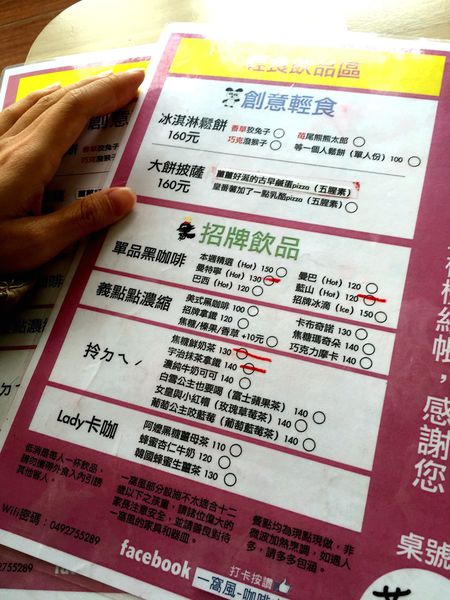 輕食飲品區
創意輕食
冰淇淋鬆餅
160元
香草狡兔子
苺尾熊熊太郎
巧克潑猴子
等一個人鬆餅 (單人份) 100
大餅披薩
160元
薑薑好涎的古早鹹蛋pizza (五腥素)
皇番薯加了一點乳酪pizza (五腥素)
招牌飲品
單品黑咖啡
本週精選 (Hot) 150
曼巴 (Hot) 120
曼特寧 (Hot) 130
藍山 (Hot) 120
巴西 (Hot) 120
招牌冰滴 (Ice) 150
義點點濃縮
美式黑咖啡 100
卡布奇諾 130
招牌拿鐵 120
焦糖瑪奇朵 140
焦糖/榛果/香草 +10元
巧克力摩卡 140
拎ㄉㄟˊ
焦糖鮮奶茶 130
宇治抹茶拿鐵 140
濃純牛奶可可 140
白雪公主也要喝 (富士蘋果茶) 140
女皇與小紅帽 (玫瑰草莓茶) 140
葡萄公主咬藍莓 (葡萄藍莓茶) 140
Lady卡咖
阿嬤黑糖薑母茶 110
蜂蜜杏仁牛奶 120
韓國蜂蜜生薑茶 130
低消是每人一杯飲品，
請勿攜帶外食入內引誘
其他客人。
一窩風部分設施不太適合十二
歲以下之孩童，請諸位偉大的
家長注意安全，並請善良對待
一窩風的家具和器皿。
餐點均為現點現做，非
微波加熱烹調，如遇人
多，請多多包涵。
Wifi密碼：0492755289
facebook
打卡按讚
一窩風-咖啡
結帳，感謝您
桌號
創意
92755289